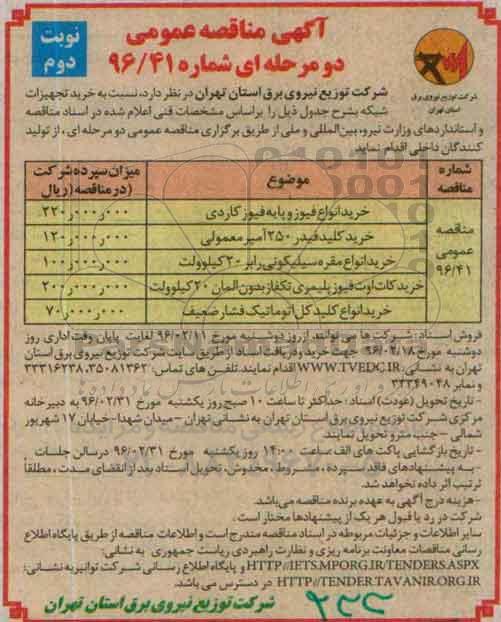 آگهی مناقصه عمومی
دو مرحله ای شماره ۹۶/۴۱
نوبت
دوم
شرکت توزیع نیروی برق
استان تهران
شرکت توزیع نیروی برق استان تهران در نظر دارد، نسبت به خرید تجهیزات
شبکه بشرح جدول ذیل را براساس مشخصات فنی اعلام شده در اسناد مناقصه
و استانداردهای وزارت نیرو، بین‌المللی و ملی از طریق برگزاری مناقصه عمومی دو مرحله ای، از تولید
کنندگان داخلی اقدام نماید
شماره مناقصه | موضوع | میزان سپرده شرکت در مناقصه (ریال)
مناقصه عمومی ۹۶/۴۱
خرید انواع فیوز و پایه فیوز کاردی | ۲۲۰٫۰۰۰٫۰۰۰
خرید کلید فیدر ۲۵۰ آمپر معمولی | ۱۲۰٫۰۰۰٫۰۰۰
خرید انواع مقره سیلیکونی رابر ۲۰ کیلوولت | ۱۰۰٫۰۰۰٫۰۰۰
خرید کات اوت فیوز پلیمری تکفاز بدون المان ۲۰ کیلوولت | ۲۰۰٫۰۰۰٫۰۰۰
خرید انواع کلید کل اتوماتیک فشار ضعیف | ۷۰٫۰۰۰٫۰۰۰
فروش اسناد: شرکت ها می توانند از روز دوشنبه مورخ ۹۶/۰۲/۱۱ لغایت پایان وقت اداری روز
دوشنبه مورخ ۹۶/۰۲/۱۸ جهت خرید و دریافت اسناد از طریق سایت شرکت توزیع نیروی برق استان
تهران به نشانی: WWW.TVEDC.IR اقدام نمایند. تلفن های تماس: ۳۵۰۸۱۳۶۲، ۳۳۳۱۶۲۳۸
و نمابر ۳۳۳۴۹۰۴۸
- تاریخ تحویل (عودت) اسناد: حداکثر تا ساعت ۱۰ صبح روز یکشنبه مورخ ۹۶/۰۲/۳۱ به دبیرخانه
مرکزی شرکت توزیع نیروی برق استان تهران به نشانی تهران - میدان شهدا - خیابان ۱۷ شهریور
شمالی - جنب مترو تحویل نمایند.
- تاریخ بازگشایی پاکت های الف ساعت ۱۴:۰۰ روز یکشنبه مورخ ۹۶/۰۲/۳۱ در سالن جلسات
- به پیشنهادهای فاقد سپرده، مشروط، مخدوش، تحویل اسناد بعد از انقضای مدت، مطلقاً
ترتیب اثر داده نخواهد شد.
- هزینه درج آگهی به عهده برنده مناقصه می‌باشد.
شرکت در رد یا قبول هر یک از پیشنهادها مختار است.
سایر اطلاعات و جزئیات مربوطه در اسناد مناقصه مندرج است و اطلاعات مناقصه از طریق پایگاه اطلاع
رسانی مناقصات معاونت برنامه ریزی و نظارت راهبردی ریاست جمهوری به نشانی:
HTTP://IETS.MPORG.IR/TENDERS.ASPX و پایگاه اطلاع رسانی شرکت توانیر به نشانی:
HTTP://TENDER.TAVANIR.ORG.IR در دسترس می باشد.
شرکت توزیع نیروی برق استان تهران